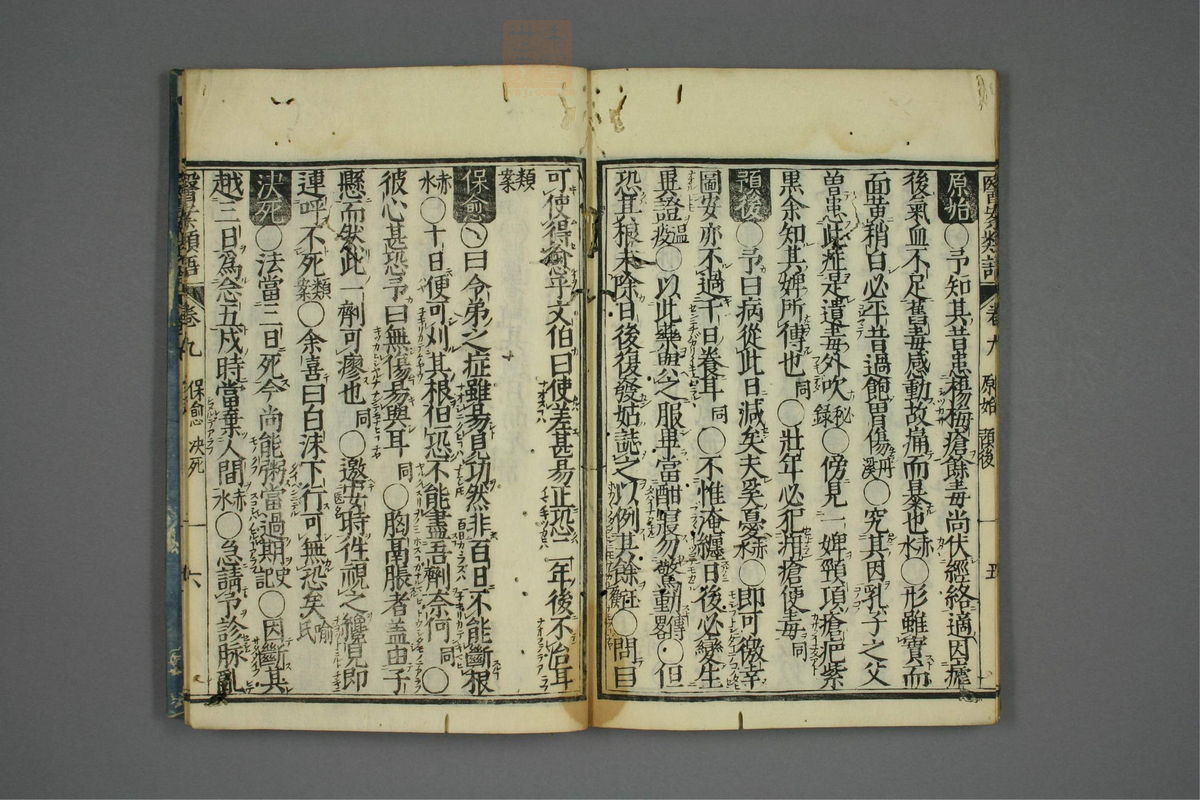 原始○予知其昔患楊梅瘡餘毒尚伏經絡適因瘧
後氣血不足舊毒感動故痛而暴也赤水○形雖實而
面黄稍白必平昔過飽胃傷丹溪○究其因乳子之父
曽患此症是遺毒外吹秘録○傍見一婢頸項瘡疤紫
黒余知其婢所傳也同○壯年必犯疳瘡便毒同
預後○予曰病從此日減矣夫奚憂赤水○即可徼幸
圖安亦不過千日養耳同○不惟淹纏日後必變生
異證温疫○以此藥與之服畢當酣寝勿驚動畧傳○但
恐其根未除日後復發姑誌之以例其餘○問目
可使得愈乎文伯曰使差甚易正恐二年後不治耳
類案
保愈○曰令弟之症雖易見功然非百日不能斷根
赤水○十日便可刈其根但恐不能盡吾劑奈何同○
彼心甚恐予曰無傷易與耳同○胸髙脹者盖由子
懸而然此一劑可瘳也同○邀安時徃視之纔見即
連呼不死類案○余喜曰白沫下行可無恐矣喻氏
決死○法當三日死今尚能粥當過期史記○因斷其
越三日為念五戍時當棄人間赤水○急請予診脉亂
醫案類語 卷九 原始 預後 五
醫案類語 卷九 保愈 決死 六